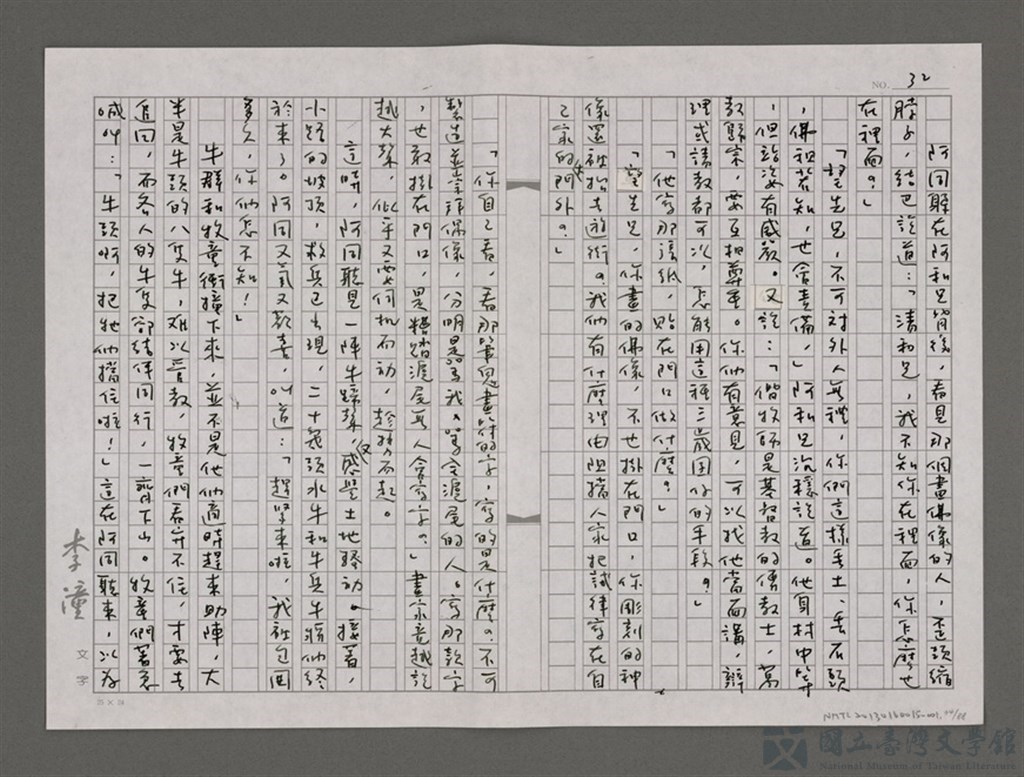 NO. 32
阿同躲在阿和兄背後，看見那個畫佛像的人，歪頭縮
脖子，結巴說道：「清和兄，我不知你在裡面，你怎麼也
在裡面？」
「望生兄，不可對外人無禮，你們這樣丟土、丟石頭
，佛祖若知，也會責備，」阿和兄沉穩說道。他身材中等
，但語姿有威嚴。又說：「偕牧師是基督教的傳教士，萬
教歸宗，要互相尊重。你們有意見，可以找他當面講，辯
理或請教都可以，怎能用這種三歲囝仔的手段？」
「他寫那張紙，貼在門口做什麼？」
「望生兄，你畫的佛像，不也掛在門口，你彫刻的神
像還被抬去遊街？我們有什麼理由阻擋人家把誡律寫在自
己家的門外？」
「你自己看，看那筆鬼畫符的字，寫的是什麼？不可
製造並崇拜偶像，分明是罵我。罵全滬尾的人。寫那款字
，也敢掛在門口，是糟踏滬尾無人會寫字？」畫家竟越說
越大聲，似乎又要伺机而動，趁勢而起。
這時，阿同聽見一陣牛蹄聲，感覺土地騷動。接著，
小徑的坡頂，救兵已出現，二十幾頭水牛和牛兵牛將們終
於來了。阿同又氣又歡喜，叫道：「趕緊來啦，我被包圍
多久，你們怎不知！」
牛群和牧童衝撞下來，並不是他們適時趕來助陣，大
半是牛頭的八隻牛，难以管教，牧童們看守不住，才要去
追回，而各人的牛隻卻結伴同行，一齊下山。牧童們著急
喊叫：「牛頭啊，把牠們擋住啦！」這在阿同聽來，以為
李潼
文字
25×24
NMTL20130160015-001,
國立臺灣文學館
National Museum of Taiwan Literature